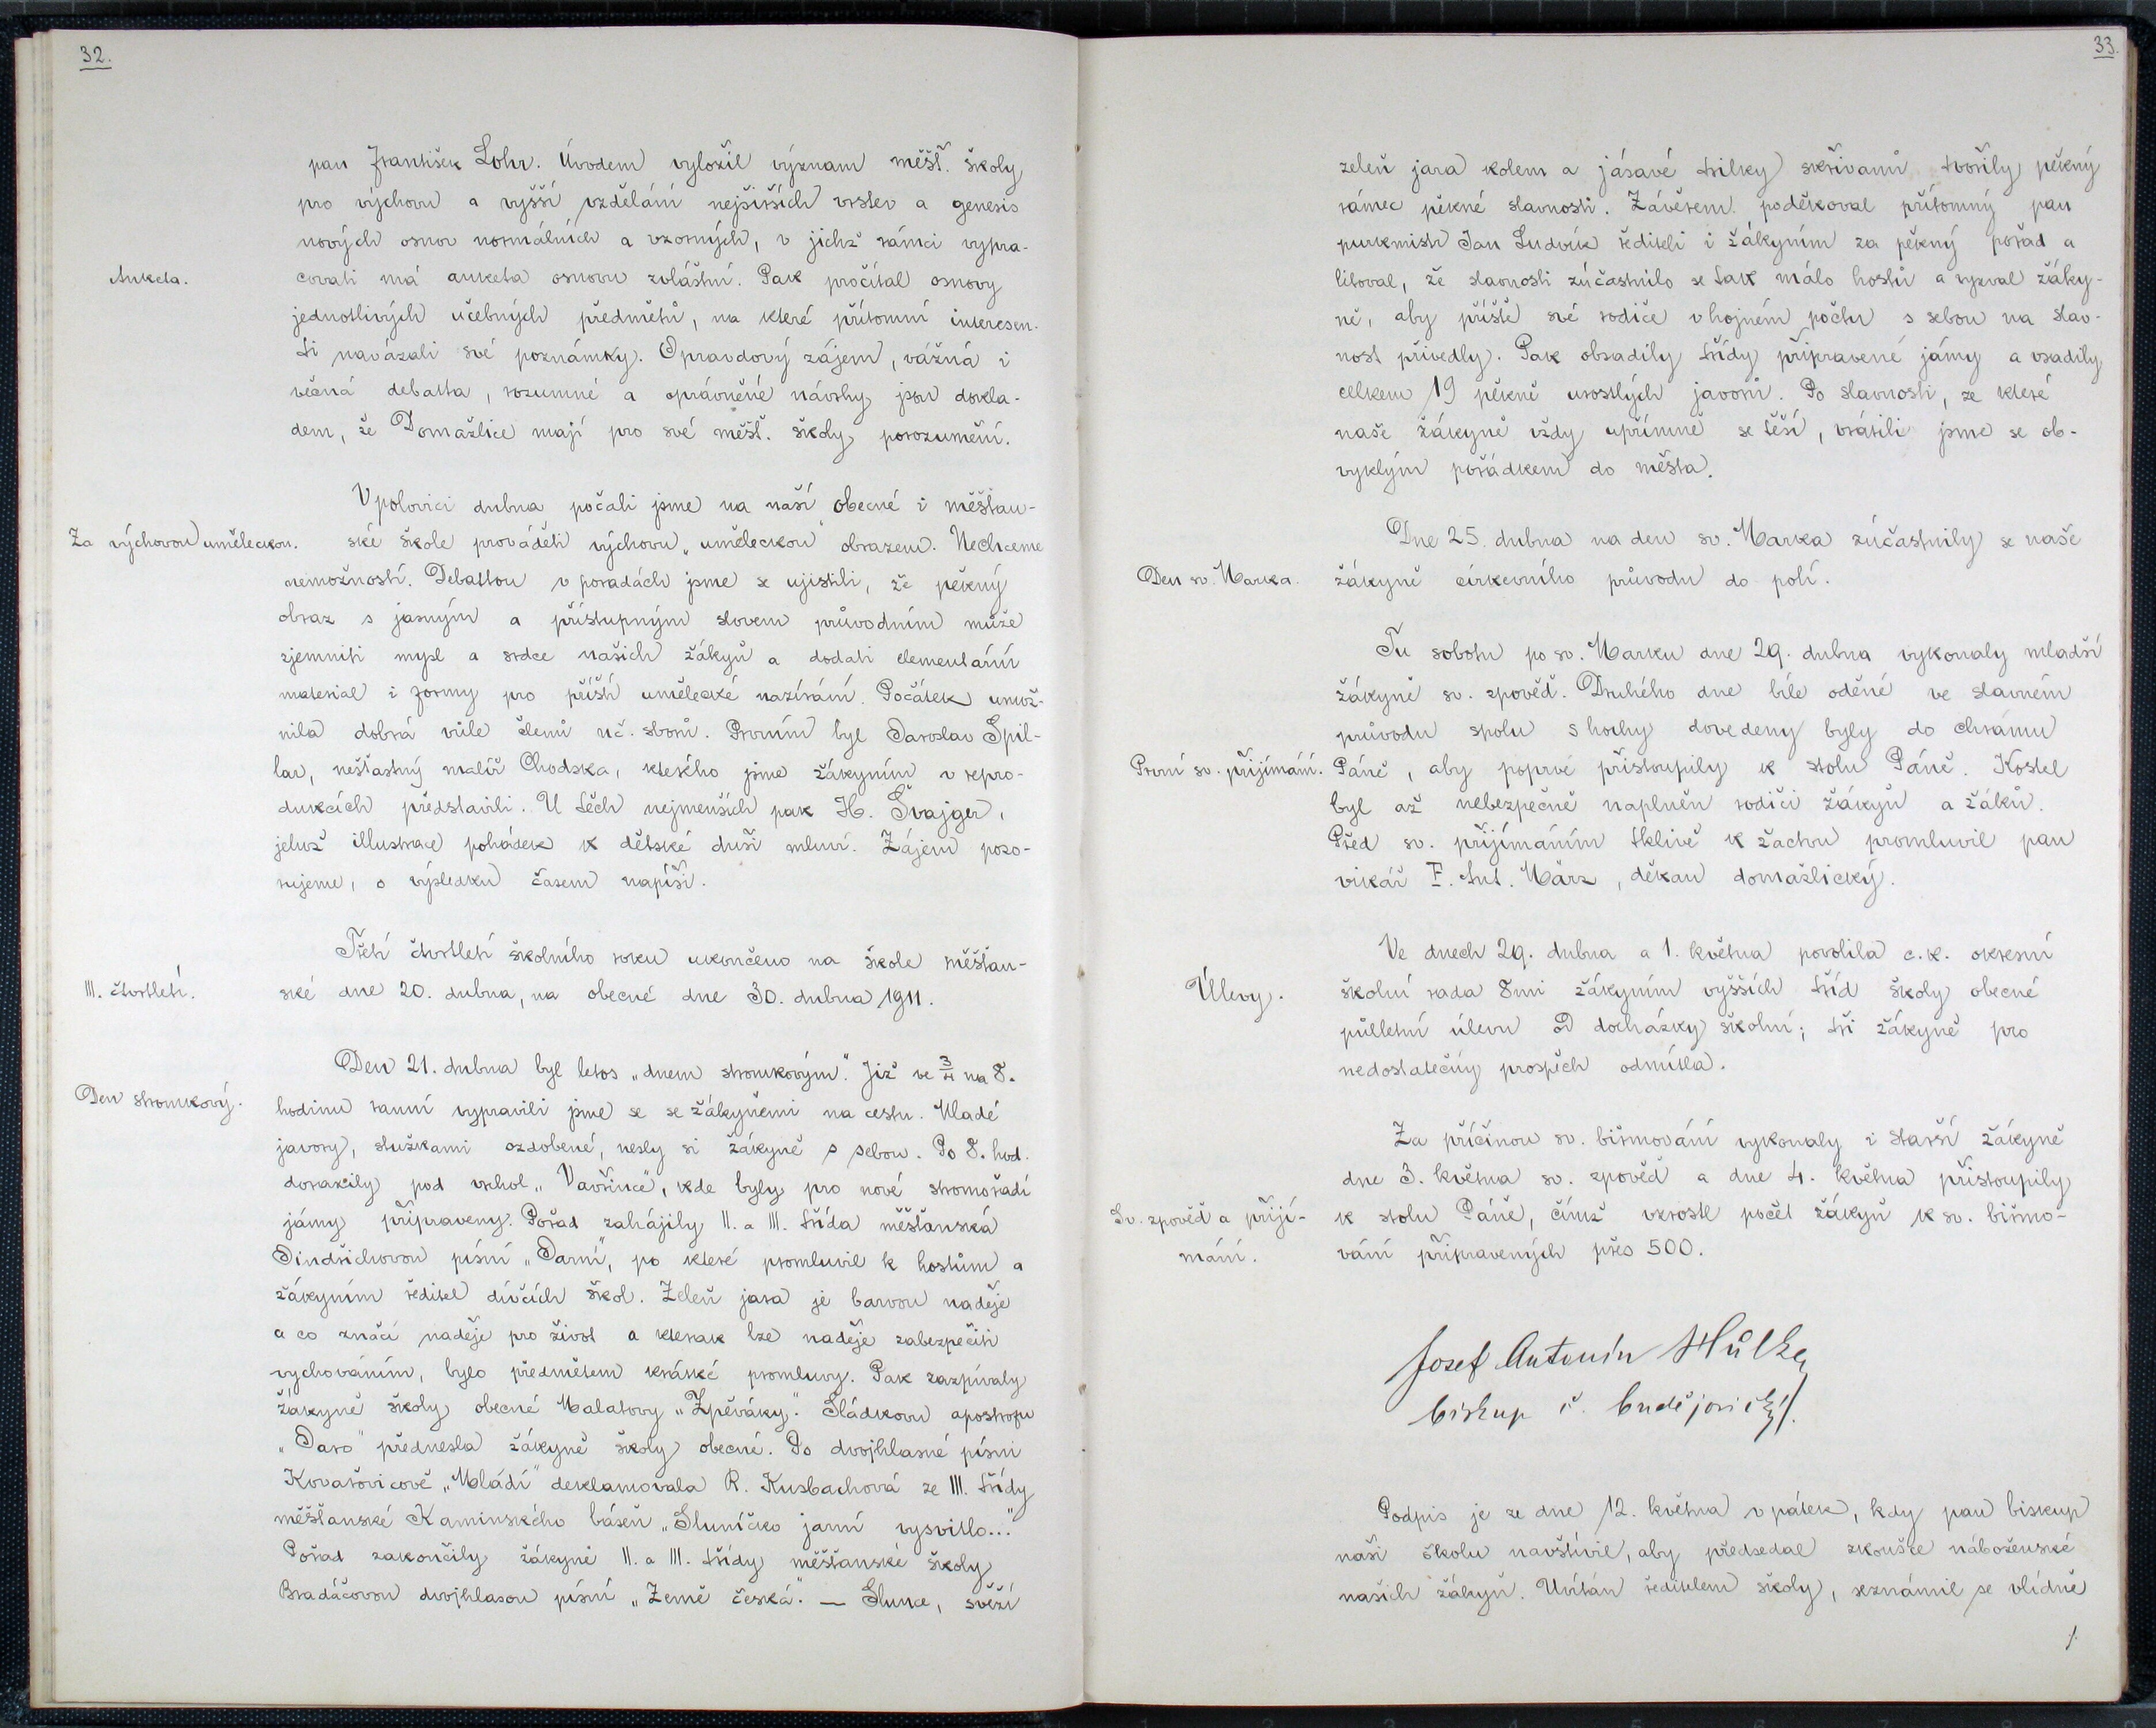 32.
pan František Lohr. Úvodem vyložil význam měšť. školy
pro výchovu a vyšší vzdělání nejširších vrstev a genesis
nových osnov normálních a vzorných, v jichž rámci vypra-
Anketa.
covati má anketa osnovu zvláštní. Pak pročítal osnovy
jednotlivých učebných předmětů, na které přítomní interesen-
ti navázali své poznámky. Opravdový zájem, vážná i
věčná debatta, rozumné a oprávněné návrhy jsou dokla-
dem, že Domažlice mají pro své měšť. školy porozumění.
V polovici dubna počali jsme na naší obecné i měšťan-
Za výchovou uměleckou.
ské škole prováděti výchovu „uměleckou" obrazem. Nechceme
nemožností. Debattou v poradách jsme se ujistili, že pěkný
obraz s jasným a přístupným slovem průvodním může
zjemniti mysl a srdce našich žákyň a dodati elementární
material i formy pro příští umělecké nazírání. Počátek umož-
nila dobrá vůle členů uč. sborů. Prvním byl Jaroslav Špil-
lar, nešťastný malíř Chodska, kterého jsme žákyním v repro-
dukcích představili. U těch nejmenších pak H. Švajger,
jehož illustrace pohádek k dětské duši mluví. Zájem pozo-
rujeme, o výsledku časem napíši.
Třetí čtvrtletí školního roku ukončeno na škole měšťan-
III. čtvrtletí.
ské dne 20. dubna, na obecné dne 30. dubna 1911.
Den 21. dubna byl letos „dnem stromkovým". Již ve 3/4 na 8.
Den stromkový.
hodinu ranní vypravili jsme se se žákyněmi na cestu. Mladé
javory, stužkami ozdobené, nesly si žákyně s sebou. Po 8. hod.
dorazily pod vrchol „Vavřince", kde byly pro nové stromořadí
jámy připraveny. Pořad zahájily II. a III. třída měšťanská
Jindřichovou písní „Jarní", po které promluvil k hostům a
žákyním ředitel dívčích škol. Zeleň jara je barvou naděje
a co značí naděje pro život a kterak lze naděje zabezpečiti
vychováním, bylo předmětem krátké promluvy. Pak zazpívaly
žákyně školy obecné Malatovy „Zpěváky." Sládkovu apostrofu
„Jaro" přednesla žákyně školy obecné. Po dvojhlasné písni
Kovařovicově „Mládí" deklamovala R. Kusbachová ze III. třídy
měšťanské Kaminského báseň „Sluníčko jarní vysvitlo..."
Pořad zakončily žákyně II. a III. třídy měšťanské školy
Bradáčovou dvojhlasou písní „Země česká." — Slunce, svěží
33.
zeleň jara kolem a jásavé trilky skřivanů tvořily pěkný
rámec pěkné slavnosti. Závěrem poděkoval přítomný pan
purkmistr Jan Ludvík řediteli i žákyním za pěkný pořad a
litoval, že slavnosti zúčastnilo se tak málo hostů a vyzval žáky-
ně, aby příště své rodiče v hojném počtu s sebou na slav-
nost přivedly. Pak obsadily třídy připravené jámy a vsadily
celkem 19 pěkně urostlých javorů. Po slavnosti, ze které
naše žákyně vždy upřímně se těší, vrátili jsme se ob-
vyklým pořádkem do města.
Dne 25. dubna na den sv. Marka zúčastnily se naše
Den sv. Marka.
žákyně církevního průvodu do polí.
Tu sobotu po sv. Marku dne 29. dubna vykonaly mladší
žákyně sv. zpověď. Druhého dne bíle oděné ve slavném
průvodu spolu s hochy dovedeny byly do chrámu
První sv. přijímání.
Páně, aby poprvé přistoupily k stolu Páně. Kostel
byl až nebezpečně naplněn rodiči žákyň a žáků.
Před sv. přijímáním tklivě k žactvu promluvil pan
vikář F. Ant. März, děkan domažlický.
Ve dnech 29. dubna a 1. května povolila c. k. okresní
Úlevy.
školní rada 8mi žákyním vyšších tříd školy obecné
půlletní úlevu od docházky školní; tři žákyně pro
nedostatečný prospěch odmítla.
Za příčinou sv. biřmování vykonaly i starší žákyně
dne 3. května sv. zpověď a dne 4. května přistoupily
Sv. zpověď a přijí-
mání.
k stolu Páně, čímž vzrostl počet žákyň k sv. biřmo-
vání připravených přes 500.
Josef Antonín Hůlka,
biskup č. budějovický.
Podpis je ze dne 12. května v pátek, kdy pan biskup
naši školu navštívil, aby předsedal zkoušce náboženské
našich žákyň. Uvítán ředitelem školy, seznámil se vlídně
/.